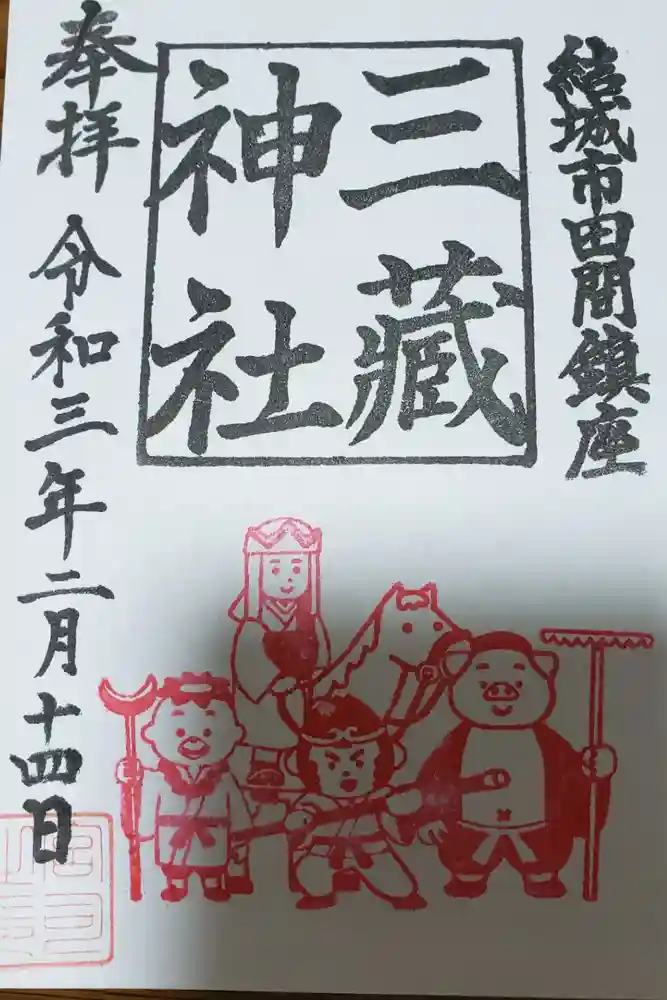 結城市田間鎮座
三蔵
神社
奉拝 令和三年二月十四日